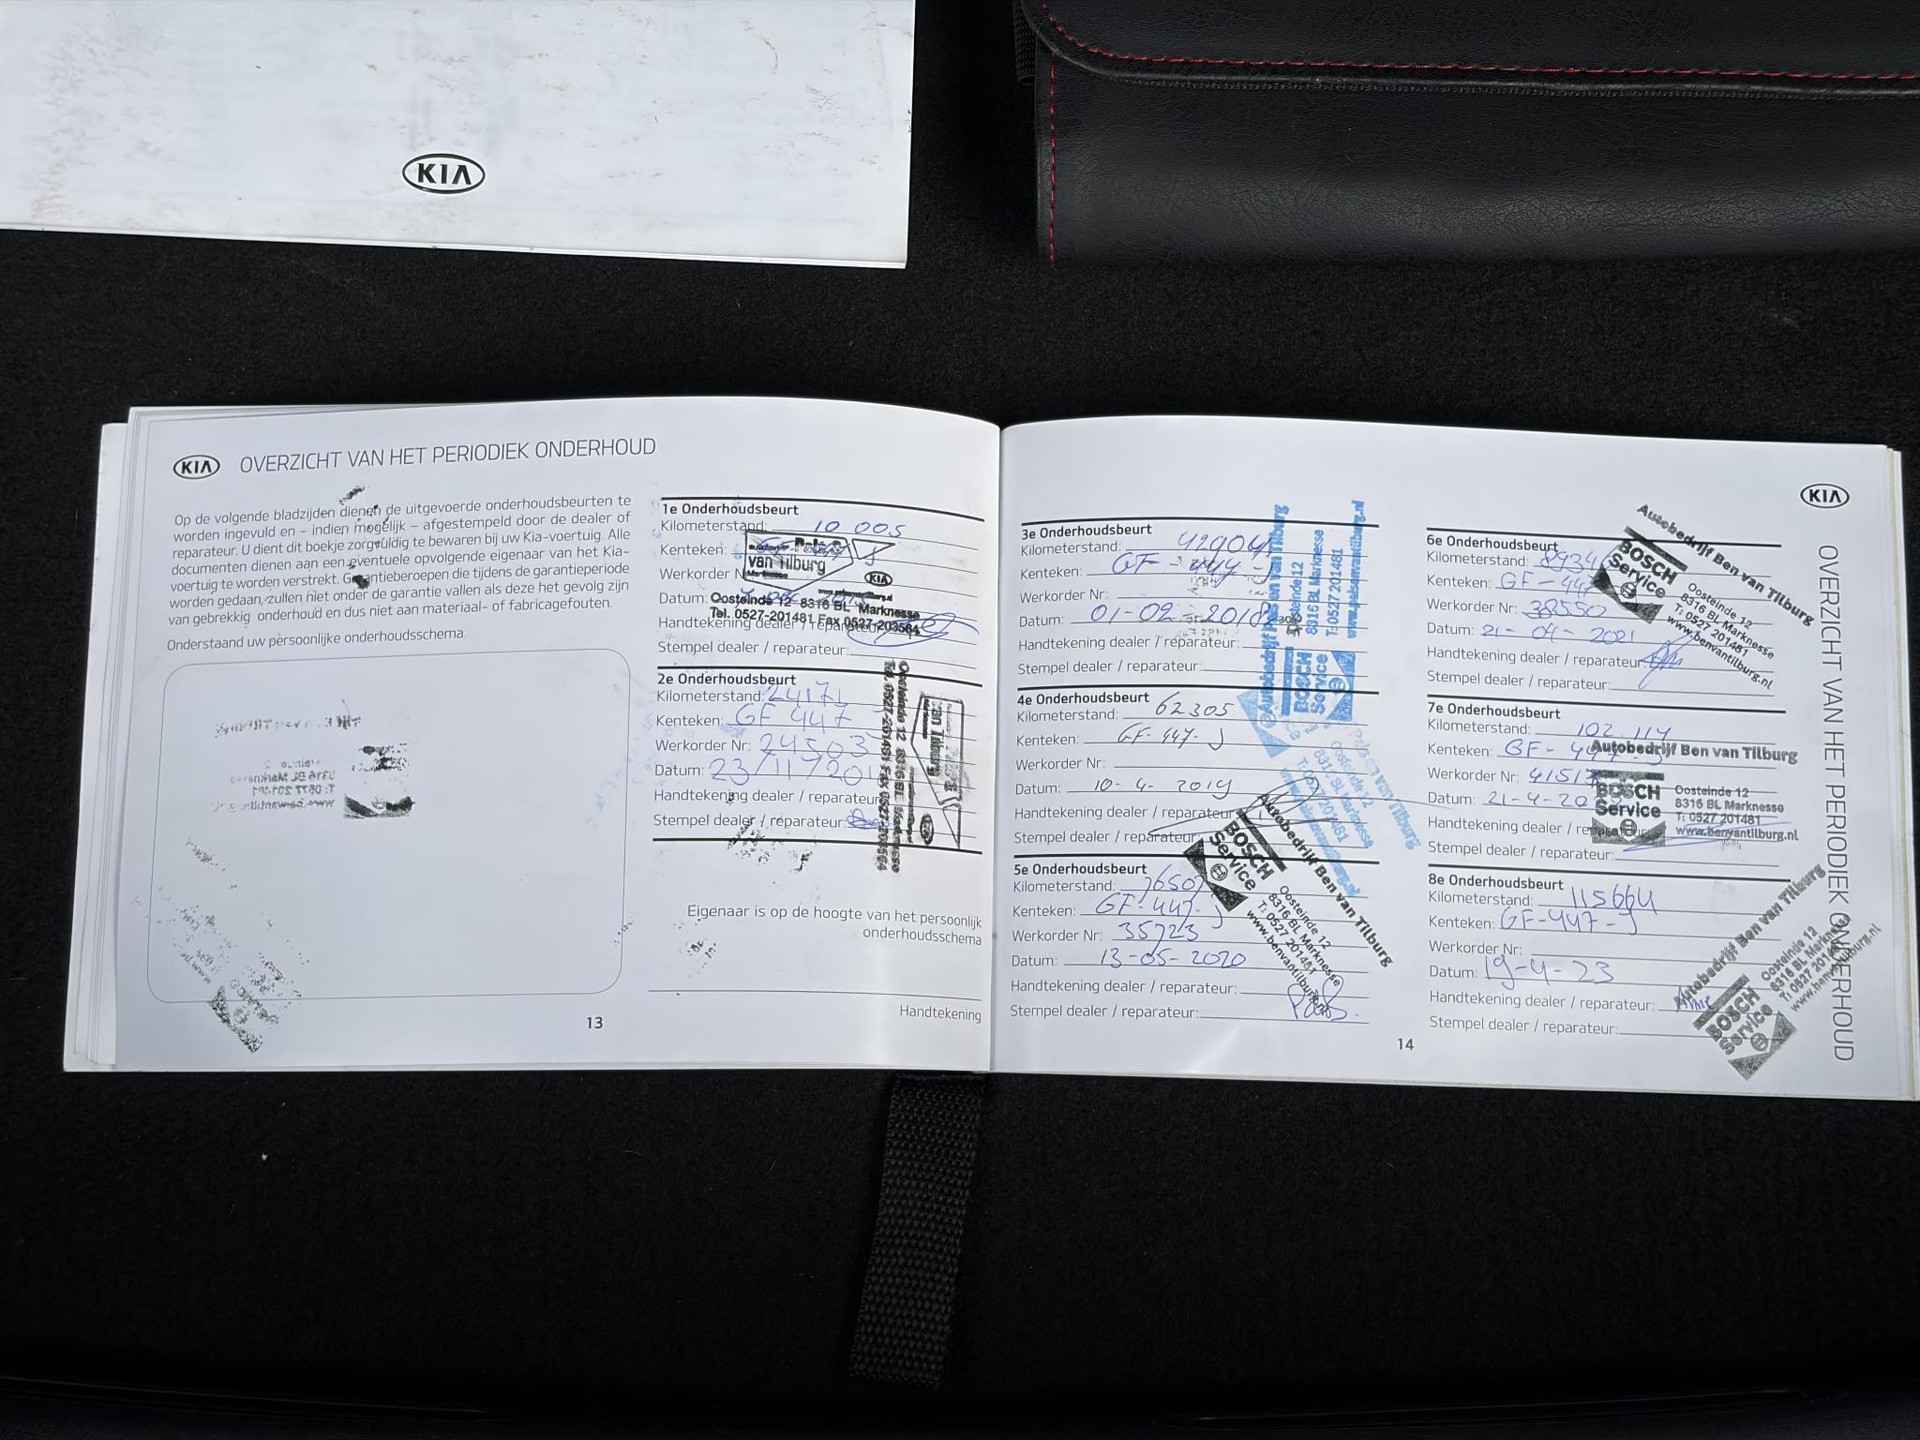 KIA
KIA
OVERZICHT VAN HET PERIODIEK ONDERHOUD
Op de volgende bladzijden dienen de uitgevoerde onderhoudsbeurten te
worden ingevuld en – indien mogelijk – afgestempeld door de dealer of
reparateur. U dient dit boekje zorgvuldig te bewaren bij uw Kia-voertuig. Alle
documenten dienen aan een eventuele opvolgende eigenaar van het Kia-
voertuig te worden verstrekt. Garantieberoepen die tijdens de garantieperiode
worden gedaan, zullen niet onder de garantie vallen als deze het gevolg zijn
van gebrekkig onderhoud en dus niet aan materiaal- of fabricagefouten.
Onderstaand uw persoonlijke onderhoudsschema.
1e Onderhoudsbeurt
Kilometerstand: 10 005
Kenteken:
van Tilburg
KIA
Werkorder
Datum:
Oosteinde 12 8316 BL Marknesse
Tel. 0527-201481 Fax 0527-203564
Handtekening dealer / reparateur:
Stempel dealer / reparateur:
2e Onderhoudsbeurt
Kilometerstand: 24171
Kenteken: GF 447
Werkorder Nr: 24503
Datum: 23/11/201
Handtekening dealer / reparateur
Stempel dealer / reparateur:
Oosteinde 12 8316 BL Marknesse
Tel. 0527-201481 Fax 0527-203564
van Tilburg
Eigenaar is op de hoogte van het persoonlijk
onderhoudsschema
Handtekening
13
3e Onderhoudsbeurt
Kilometerstand: 42904
Kenteken: GF-447-J
Werkorder Nr:
Datum: 01-02-2018
Handtekening dealer / reparateur:
Stempel dealer / reparateur:
Autobedrijf Pals en van Tilburg
BOSCH
Service
Oosteinde 12
8316 BL Marknesse
T: 0527 201481
4e Onderhoudsbeurt
Kilometerstand: 62305
Kenteken: GF-447-J
Werkorder Nr:
Datum: 10-4-2019
Handtekening dealer / reparateur
Stempel dealer / reparateur:
5e Onderhoudsbeurt
Kilometerstand: 76507
Kenteken: GF-447-J
Werkorder Nr: 35723
Datum: 13-05-2020
Handtekening dealer / reparateur:
Stempel dealer / reparateur:
Autobedrijf Ben van Tilburg
BOSCH
Service
Oosteinde 12
8316 BL Marknesse
T: 0527 201481
www.benvantilburg.nl
KIA
6e Onderhoudsbeurt
Kilometerstand: 8934
Kenteken: GF-447
Werkorder Nr: 38550
Datum: 21-04-2021
Handtekening dealer / reparateur:
Stempel dealer / reparateur:
Autobedrijf Ben van Tilburg
BOSCH
Service
Oosteinde 12
8316 BL Marknesse
T: 0527 201481
www.benvantilburg.nl
7e Onderhoudsbeurt
Kilometerstand: 102.114
Kenteken: GF-447-J
Werkorder Nr: 41517
Datum: 21-4-20
Handtekening dealer /
Stempel dealer / reparateur:
Autobedrijf Ben van Tilburg
BOSCH
Service
Oosteinde 12
8316 BL Marknesse
T: 0527 201481
www.benvantilburg.nl
8e Onderhoudsbeurt
Kilometerstand: 115664
Kenteken: GF-447-J
Werkorder Nr:
Datum: 19-4-23
Handtekening dealer / reparateur:
Stempel dealer / reparateur:
Autobedrijf Ben van Tilburg
BOSCH
Service
Oosteinde 12
8316 BL Marknesse
T: 0527 201481
www.benvantilburg.nl
OVERZICHT VAN HET PERIODIEK ONDERHOUD
14